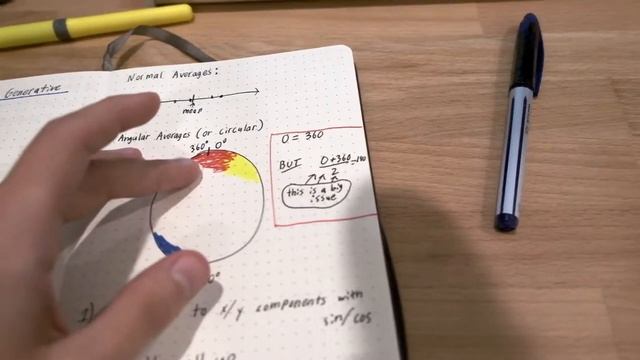 Generative
Normal Averages:
mean
Angular Averages (or circular)
360° 0°
0 = 360
BUT 0+360 = 180
2
this is a big
issue
0°
1)
to x/y components with
sin/cos